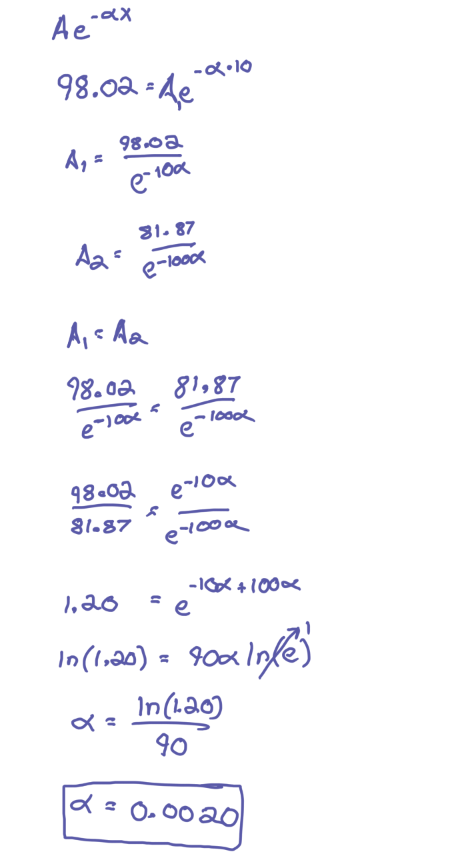 Ae^-αx
98.02 = A₁e^-α·10
A₁ = 98.02/e^-10α
A₂ = 81.87/e^-100α
A₁ = A₂
98.02/e^-10α = 81,87/e^-100α
98.02/81.87 = e^-10α/e^-100α
1.20 = e^-10α+100α
ln(1,20) = 90α ln(e) 1
α = ln(1.20)/90
α = 0.0020